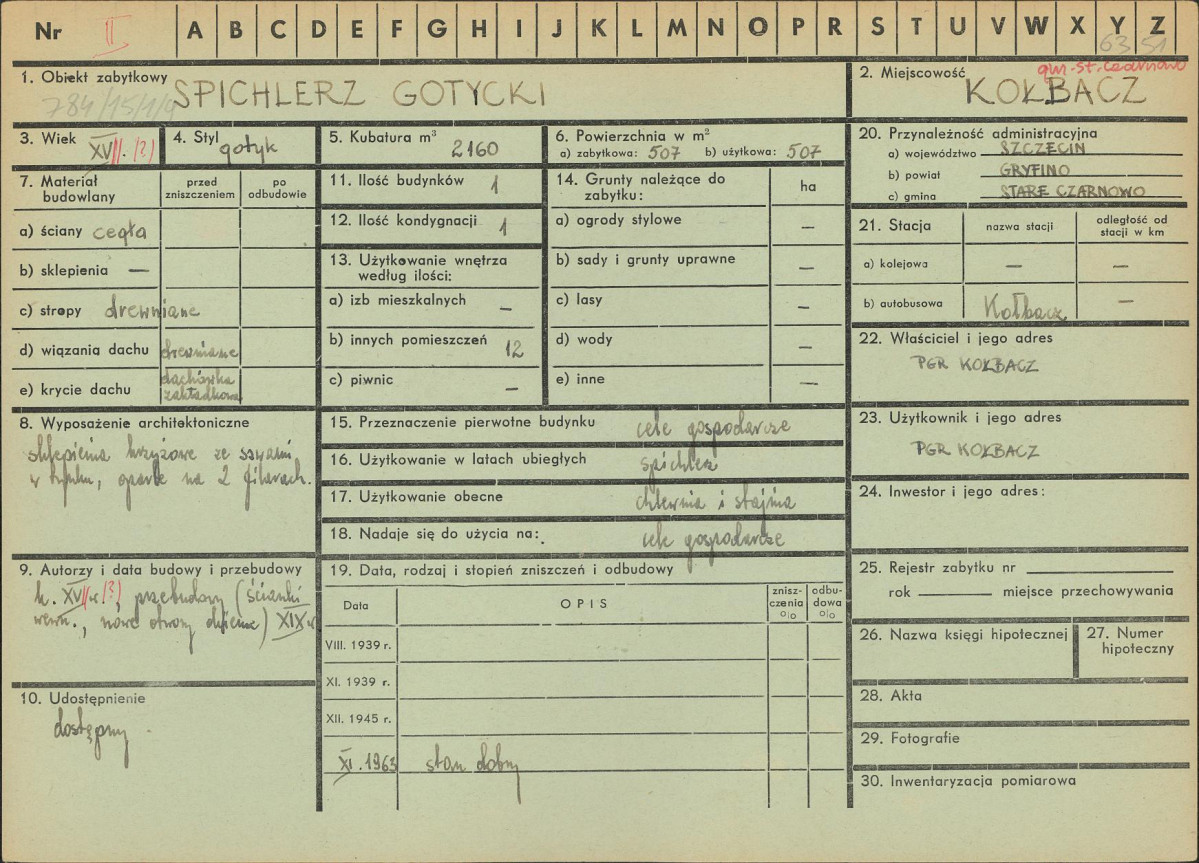 Nr II A B C D E F G H I J K L M N O P R S T U V W X Y Z
63 51
1. Obiekt zabytkowy
784/15/1/9
SPICHLERZ GOTYCKI
2. Miejscowość
gm. St. Czarnowo
KOŁBACZ
3. Wiek XV
(?)
4. Styl gotyk
5. Kubatura m³
2160
6. Powierzchnia w m²
a) zabytkowa: 507 b) użytkowa: 507
7. Materiał budowlany
przed zniszczeniem
po odbudowie
a) ściany cegła
b) sklepienia —
c) stropy drewniane
d) wiązania dachu drewniane
e) krycie dachu dachówka
zakładkowa
8. Wyposażenie architektoniczne
sklepienia krzyżowe ze szwami
w tynku, oparte na 2 filarach.
9. Autorzy i data budowy i przebudowy
k. XV w. (?), przebudowy (ścianki
wewn., nowe otwory okienne) XIX w
10. Udostępnienie
dostępny
11. Ilość budynków 1
12. Ilość kondygnacji 1
13. Użytkowanie wnętrza
według ilości:
a) izb mieszkalnych —
b) innych pomieszczeń 12
c) piwnic —
14. Grunty należące do
zabytku:
ha
a) ogrody stylowe —
b) sady i grunty uprawne —
c) lasy —
d) wody —
e) inne —
15. Przeznaczenie pierwotne budynku cele gospodarcze
16. Użytkowanie w latach ubiegłych spichlerz
17. Użytkowanie obecne chlewnia i stajnia
18. Nadaje się do użycia na: cele gospodarcze
19. Data, rodzaj i stopień zniszczeń i odbudowy
Data
OPIS
znisz-
czenia
%
odbu-
dowa
%
VIII. 1939 r.
XI. 1939 r.
XII. 1945 r.
XI. 1963 stan dobry
20. Przynależność administracyjna
a) województwo SZCZECIN
b) powiat GRYFINO
c) gmina STARE CZARNOWO
21. Stacja
nazwa stacji
odległość od
stacji w km
a) kolejowa — —
b) autobusowa Kołbacz —
22. Właściciel i jego adres
PGR KOŁBACZ
23. Użytkownik i jego adres
PGR KOŁBACZ
24. Inwestor i jego adres:
25. Rejestr zabytku nr
rok miejsce przechowywania
26. Nazwa księgi hipotecznej
27. Numer
hipoteczny
28. Akta
29. Fotografie
30. Inwentaryzacja pomiarowa